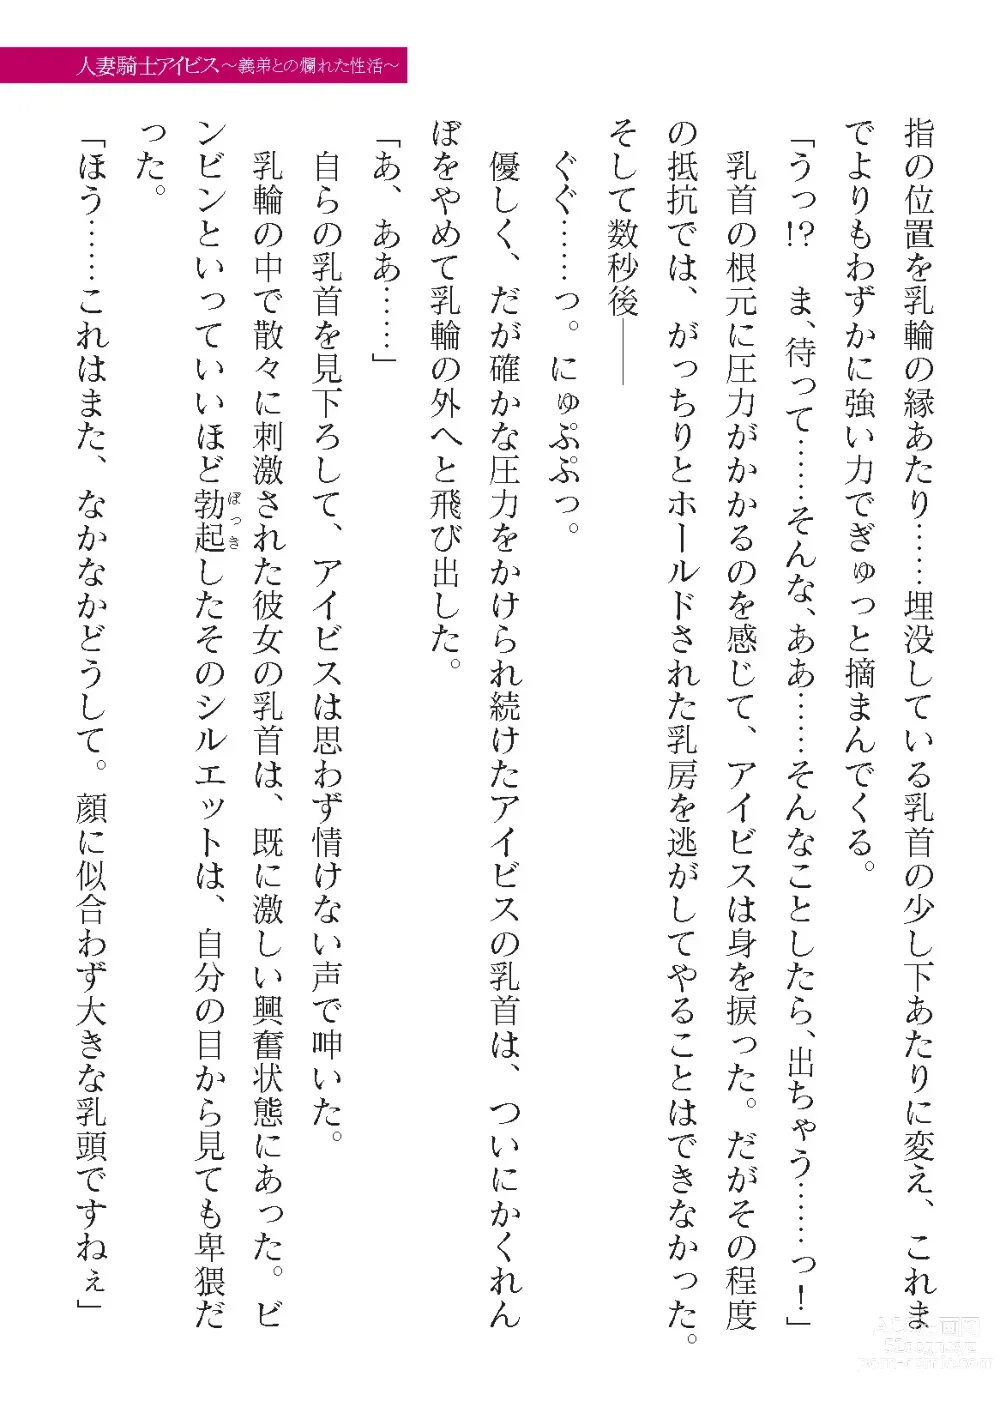 人妻騎士アイビス～義弟との爛れた性活～
指の位置を乳輪の縁あたり……埋没している乳首の少し下あたりに変え、これま
でよりもわずかに強い力でぎゅっと摘まんでくる。
「うっ!?　ま、待って……そんな、ああ……そんなことしたら、出ちゃう……っ！」
　乳首の根元に圧力がかかるのを感じて、アイビスは身を捩った。だがその程度
の抵抗では、がっちりとホールドされた乳房を逃がしてやることはできなかった。
そして数秒後――
　ぐぐ……っ。にゅぷぷっ。
　優しく、だが確かな圧力をかけられ続けたアイビスの乳首は、ついにかくれん
ぼをやめて乳輪の外へと飛び出した。
「あ、ああ……」
　自らの乳首を見下ろして、アイビスは思わず情けない声で呻いた。
　乳輪の中で散々に刺激された彼女の乳首は、既に激しい興奮状態にあった。ビ
ンビンといっていいほど勃起したそのシルエットは、自分の目から見ても卑猥だ
ぼっき
った。
「ほう……これはまた、なかなかどうして。顔に似合わず大きな乳頭ですねぇ」
52acgn.wiz
porn-comic.com